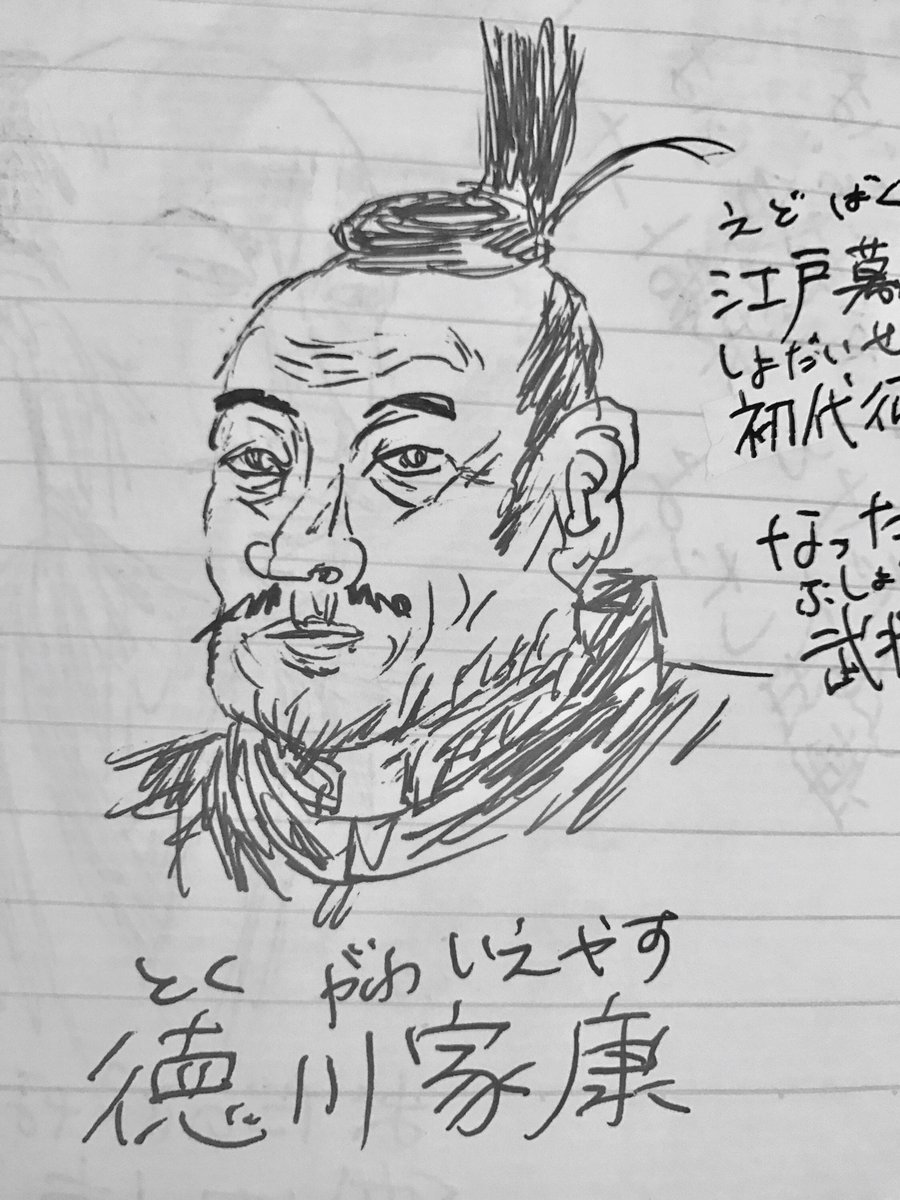 えど ばく
江戸幕
しょだいせ
初代征
なった
ぶしょ
武将
とく がわ いえやす
徳川家康